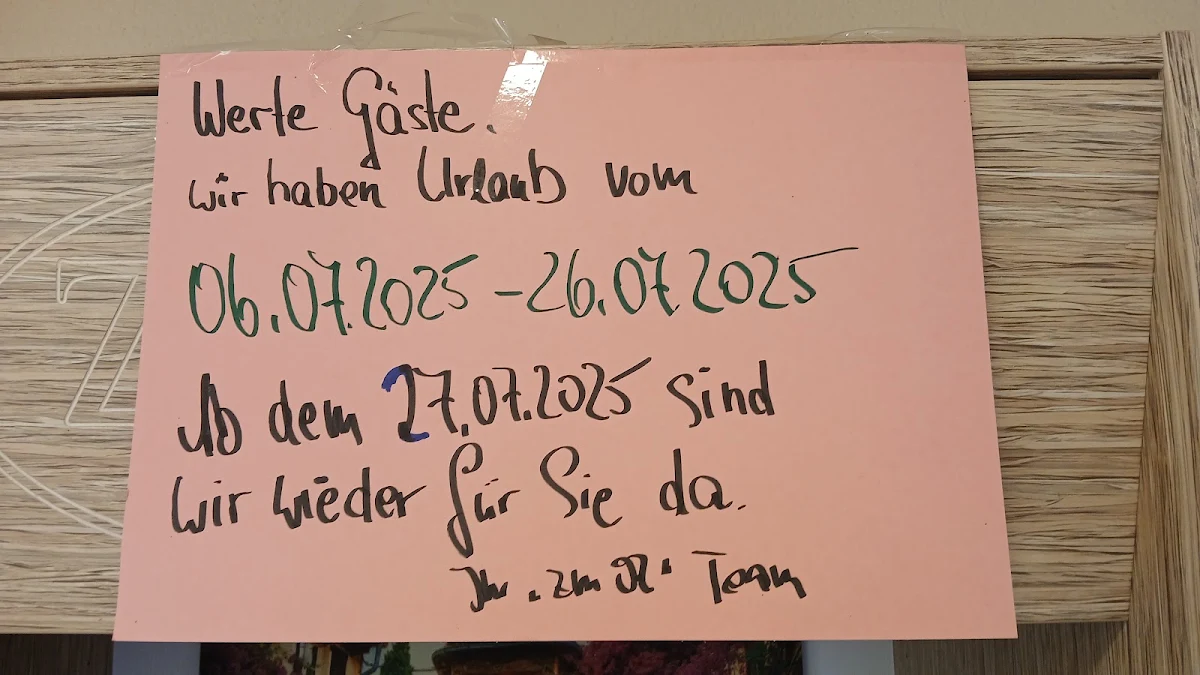 Werte Gäste.
wir haben Urlaub vom
06.07.2025 - 26.07.2025
Ab dem 27.07.2025 sind
wir wieder für Sie da.
Ihr "zum" Team